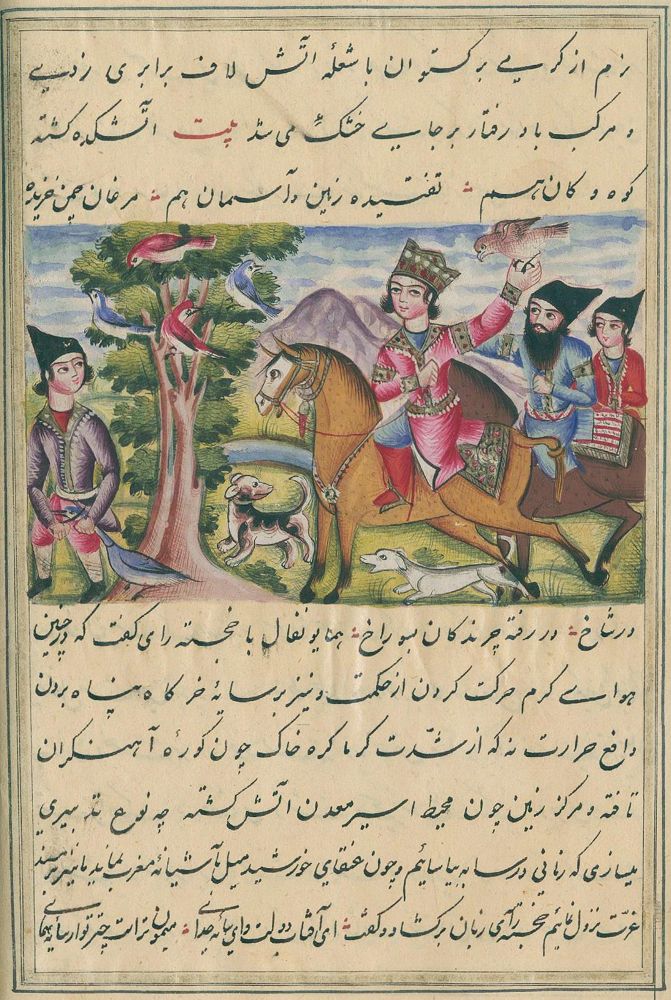 نرم از کرمے برکستوان با شعله آتش لاف برابری زدے
و مرکب باد رفتار بر جایے خشک می شد بیت آتشکده کشته
کوه و کان هم ؞ تفتیده زمین و آسمان هم ؞ مرغان چمن خزیده
در شاخ ؞ در رفته چرندکان بسوراخ ؞ همایونفال با خجسته رای کفت که در چنین
هواے کرم حرکت کردن از حکمت و نیز بر سایهٔ خرکاه پناه بردن
دافع حرارت نه که از شدت کرما کره خاک چون کورهٔ آهنکران
تافته و مرکز زمین چون محیط اسیر معدن آتش کشته چه نوع تدبیری
میسازی که زمانی در سایه بیاسائیم و چون عنقای خورشید میل بآشیانهٔ مغرب نماید ما نیز
عزت نزول نمائیم خجسته رای زبان برکشاد و کفت ؞ ای آفتاب دولت و ای سایهٔ خدای ؞ میمون تر است چتر تو از سایهٔ همای